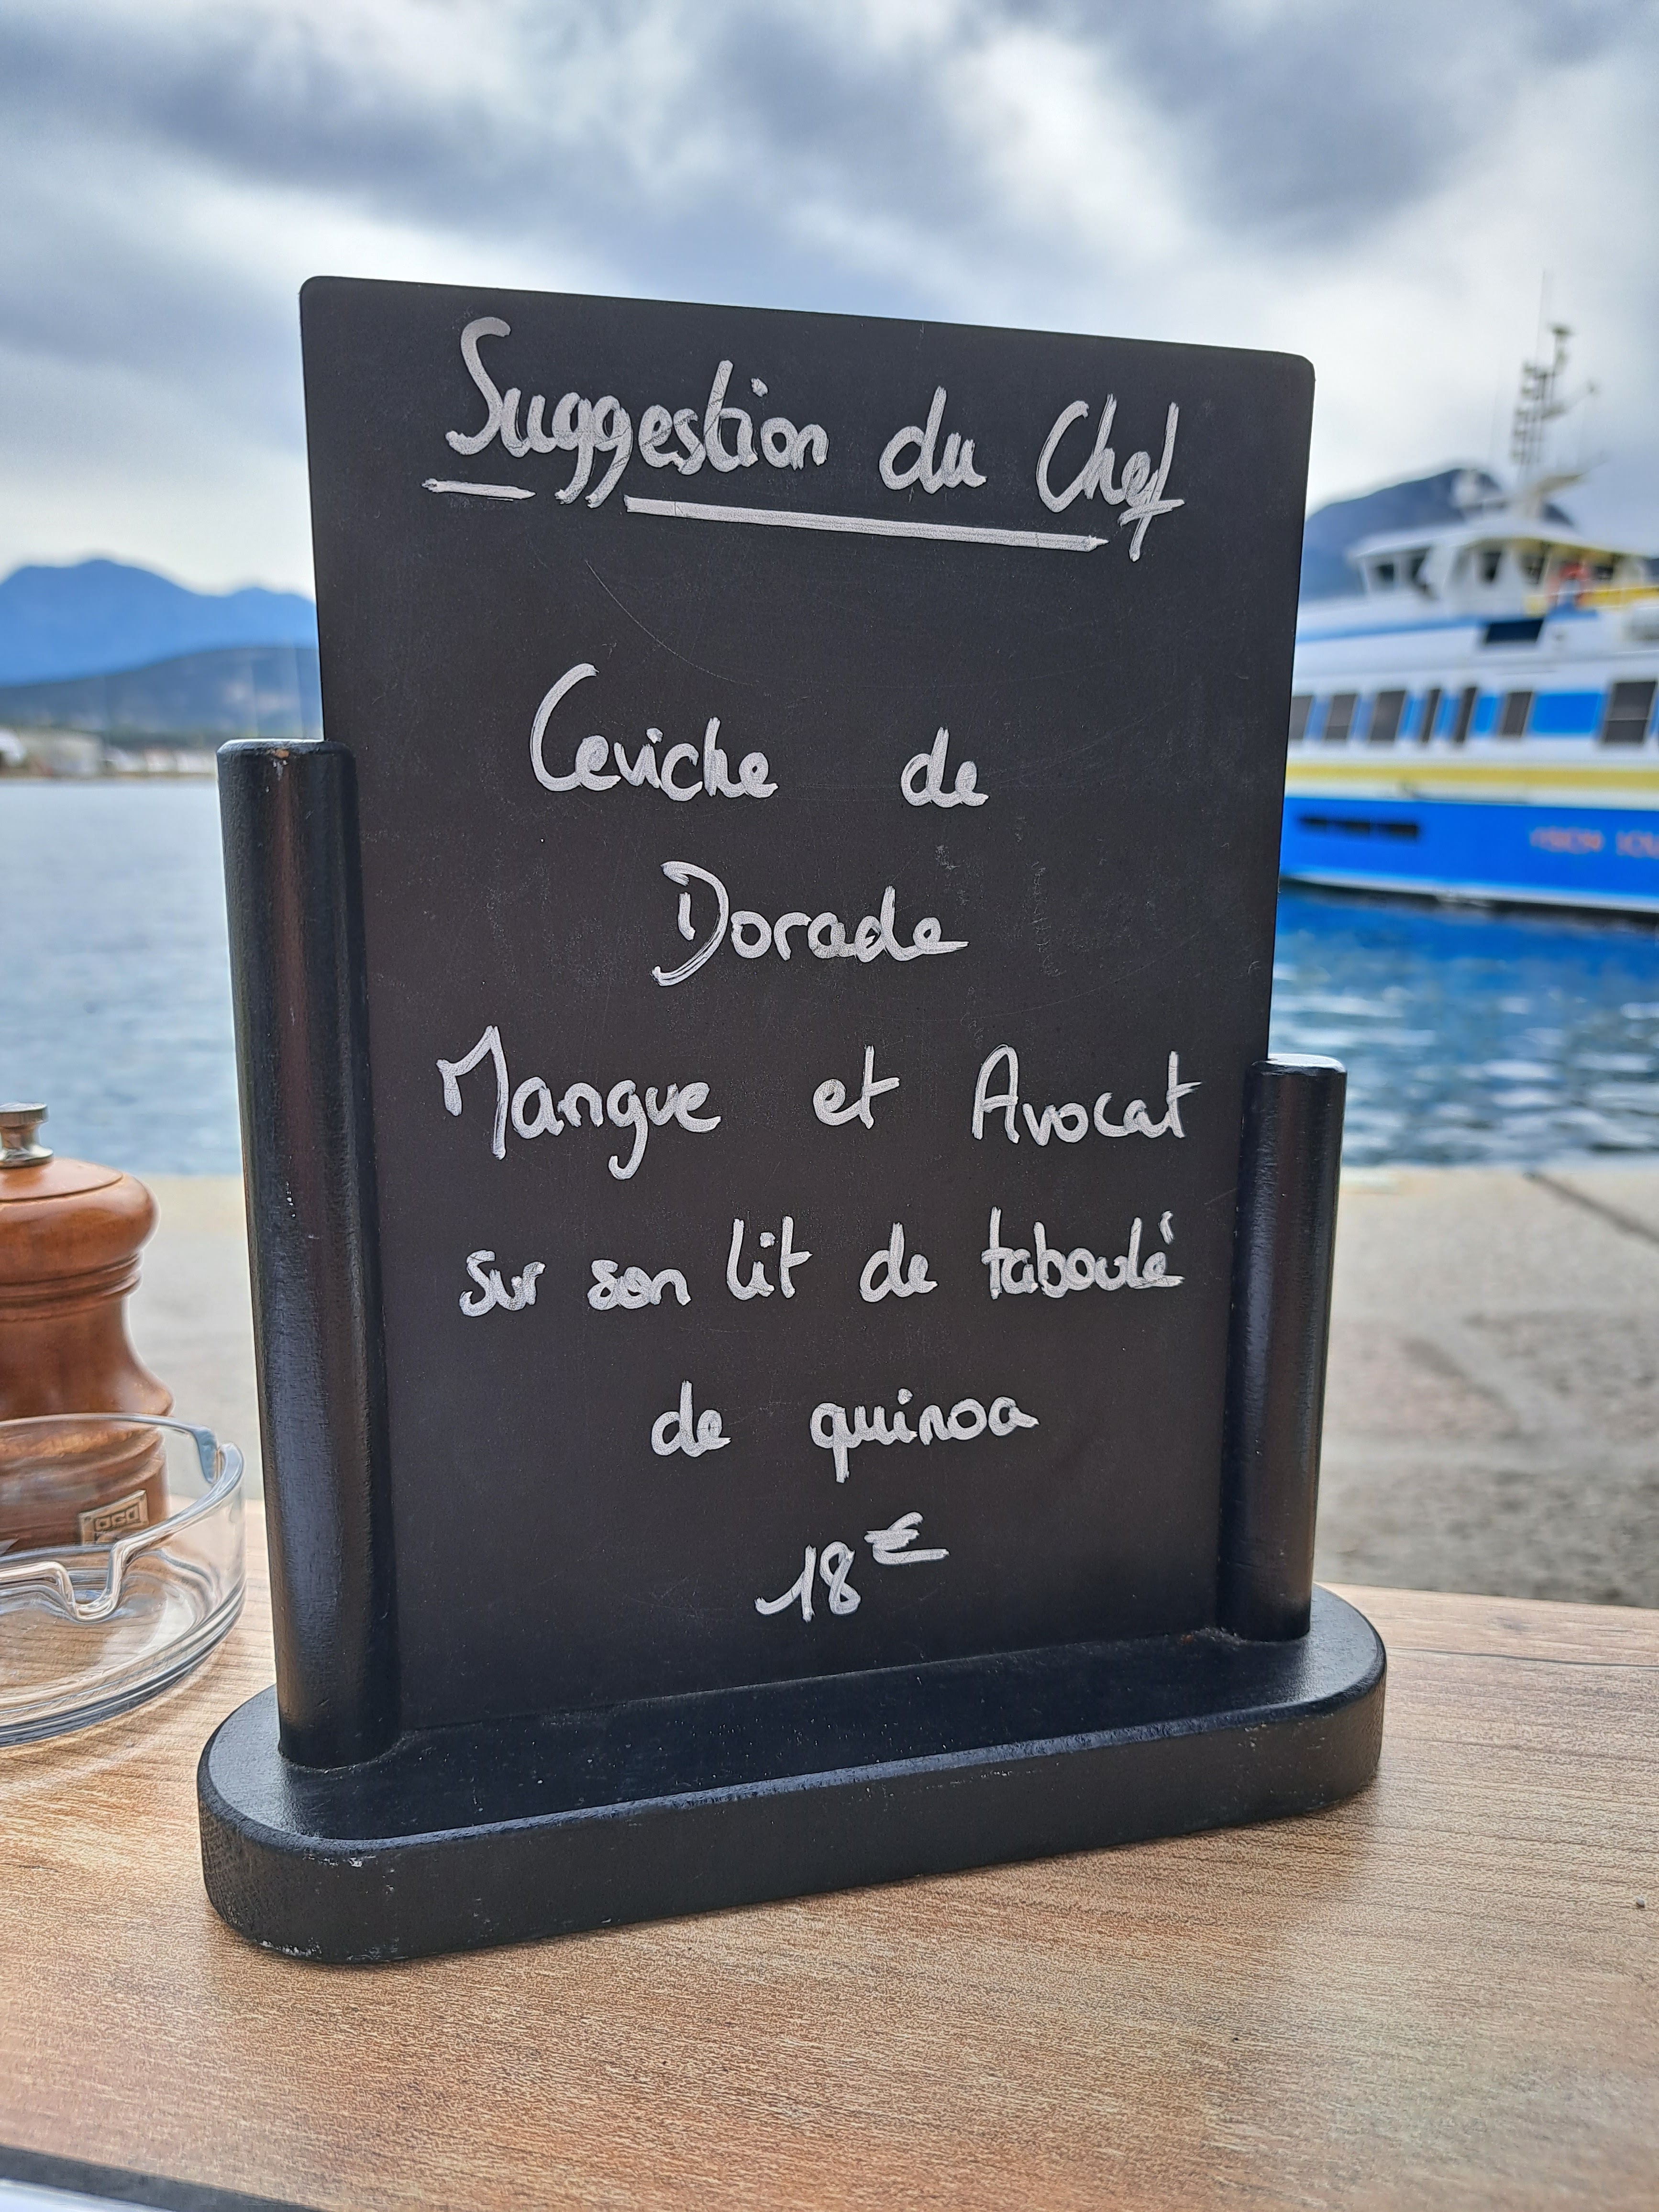 Suggestion du Chef
Ceviche de
Dorade
Mangue et Avocat
sur son lit de taboulé
de quinoa
18€